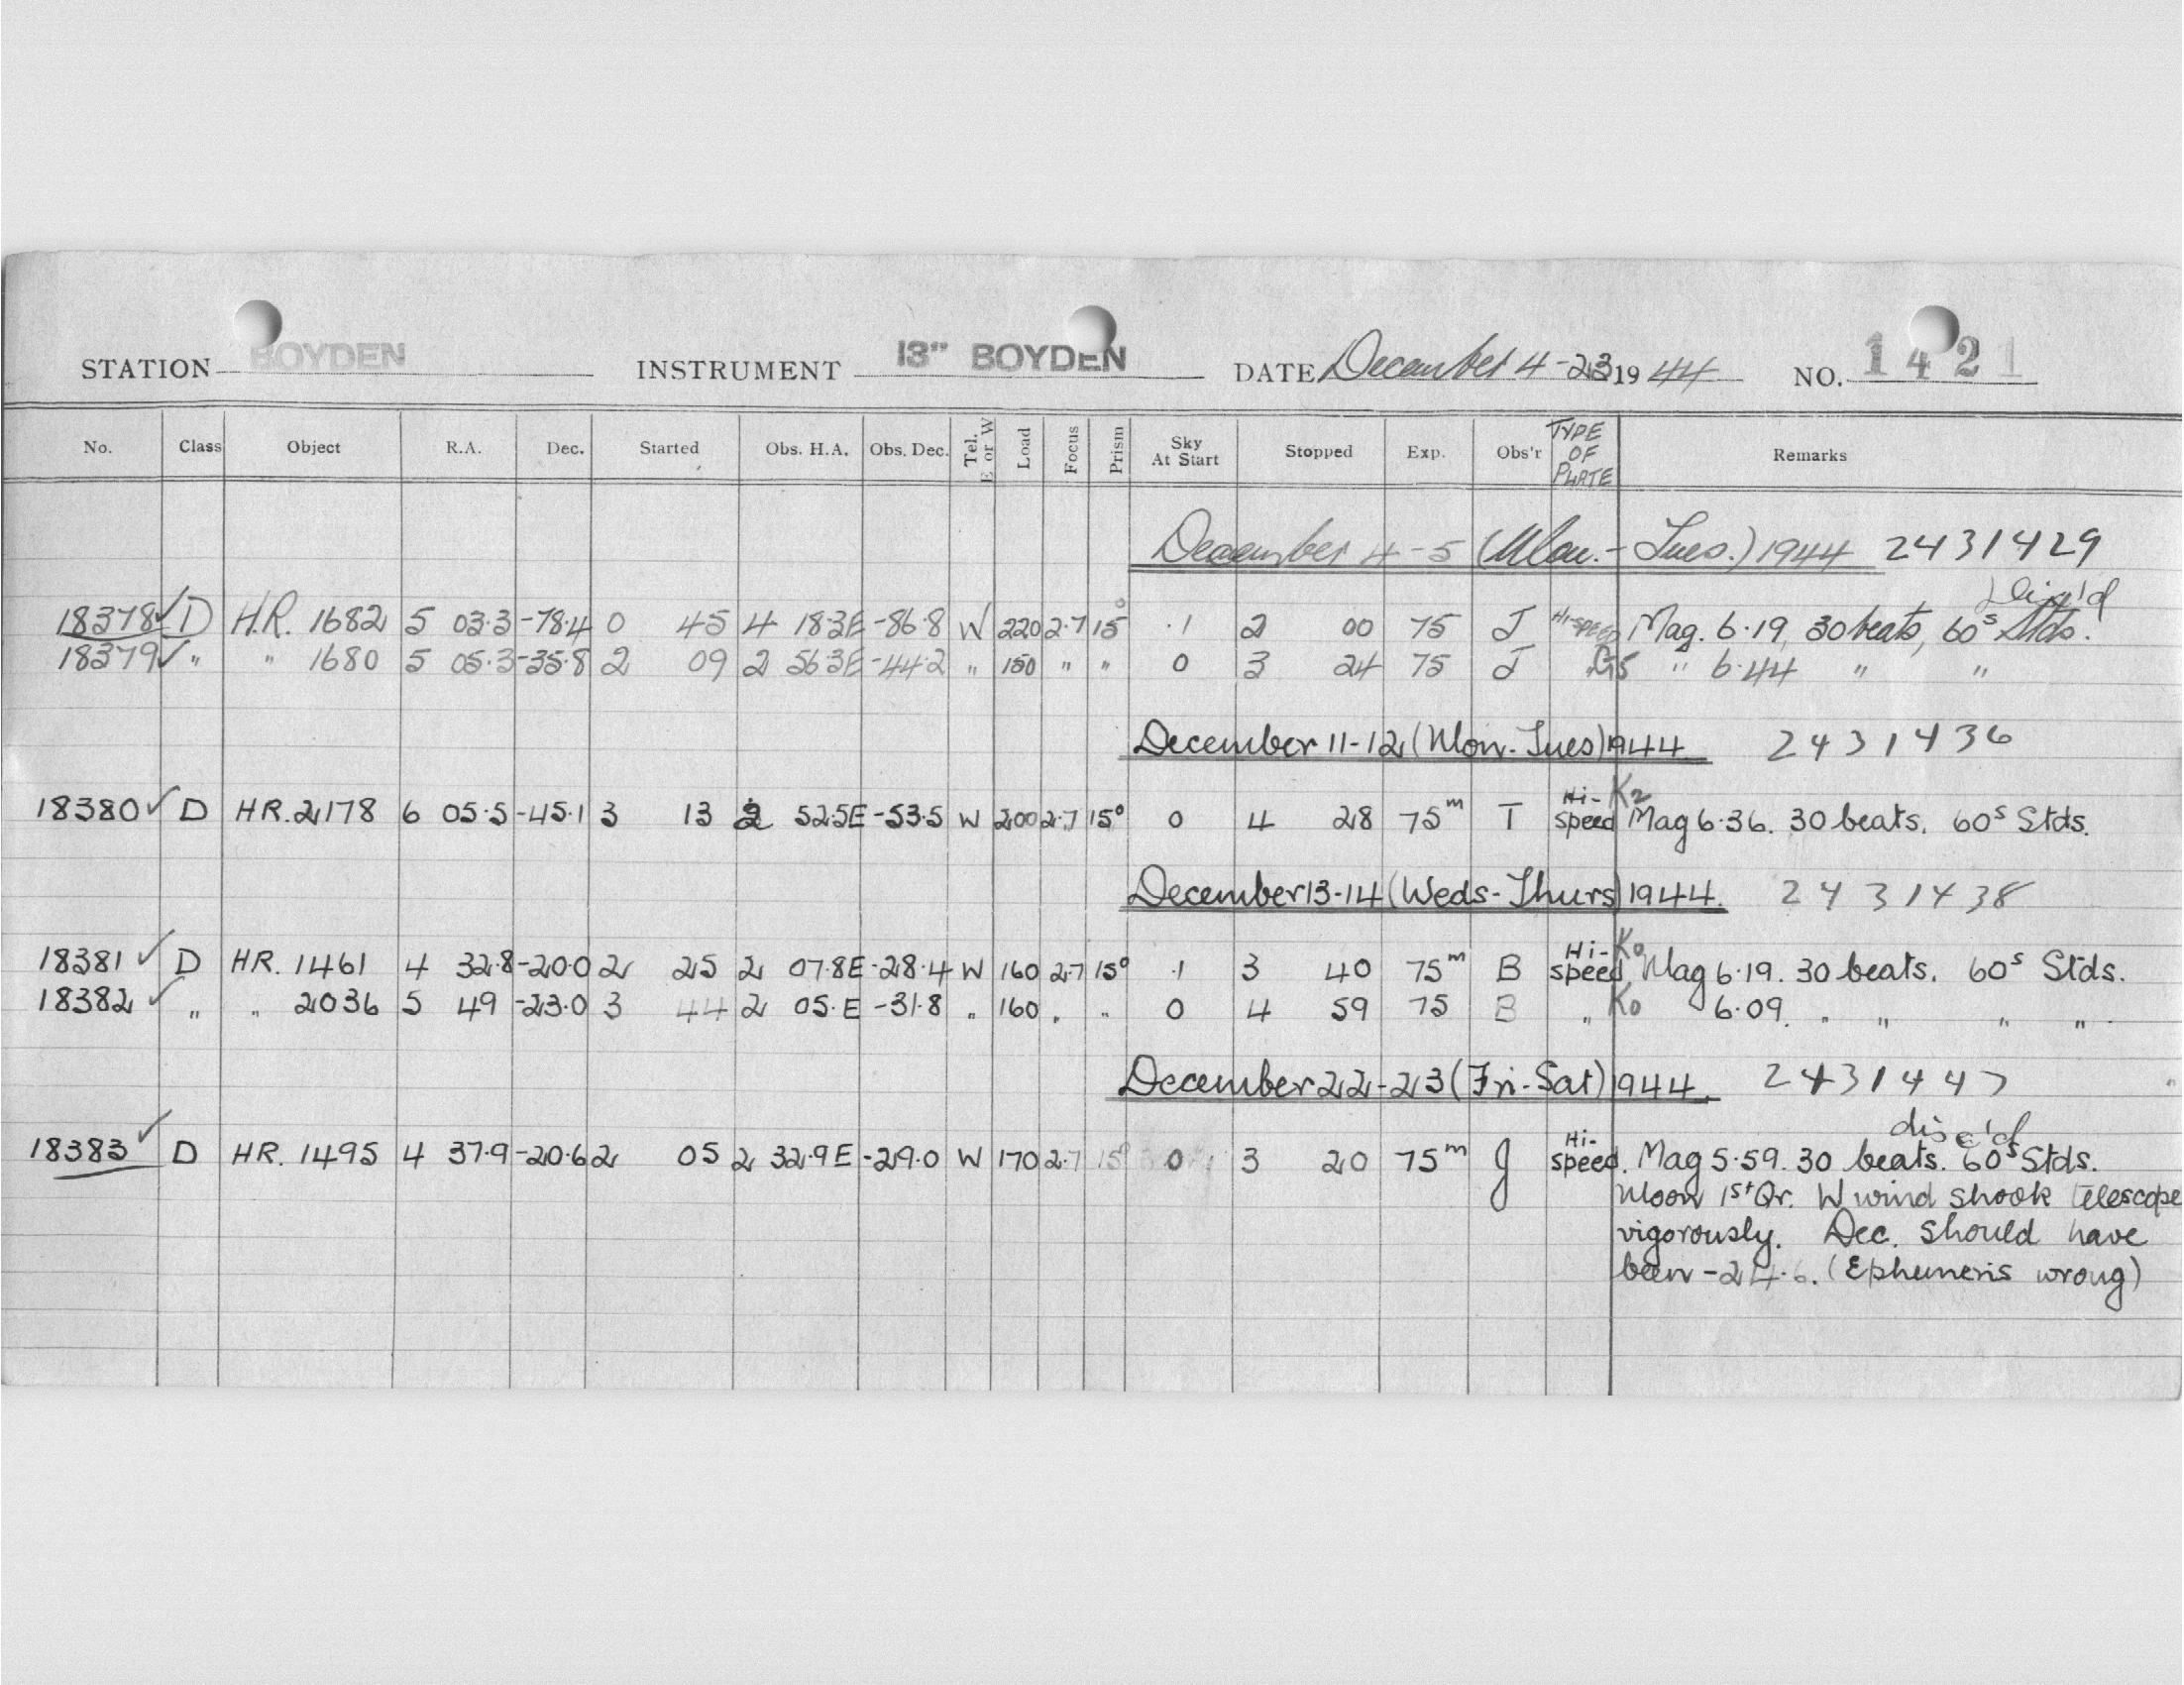 STATION BOYDEN INSTRUMENT 13" BOYDEN DATE December 4-23 1944 NO. 1421
No. Class Object R.A. Dec. Started Obs. H.A. Obs. Dec. Tel. E or W Load Focus Prism Sky At Start Stopped Exp. Obs'r TYPE OF PLATE Remarks
December 4-5 (Mon.-Tues.) 1944 2431429
disc'd
18378 ✓ D H.R. 1682 5 03.3 -78.4 0 45 4 18.3E -86.8 W 220 2.7 15° .1 2 00 75 J HI-SPEED Mag. 6.19, 30 beats, 60s Stds.
18379 ✓ " " 1680 5 05.3 -35.8 2 09 2 56.3E -44.2 " 150 " " 0 3 24 75 J G5 " 6.44 " "
December 11-12 (Mon-Tues) 1944 2431436
18380 ✓ D HR. 2178 6 05.5 -45.1 3 13 2 52.5E -53.5 W 200 2.7 15° 0 4 28 75m T Hi-speed K2 Mag 6.36. 30 beats. 60s Stds.
December 13-14 (Weds-Thurs) 1944. 2431438
18381 ✓ D HR. 1461 4 32.8 -20.0 2 25 2 07.8E -28.4 W 160 2.7 15° .1 3 40 75m B Hi-speed K0 Mag 6.19. 30 beats. 60s Stds.
18382 ✓ " " 2036 5 49 -23.0 3 44 2 05.E -31.8 " 160 " " 0 4 59 75 B " K0 6.09. " " " "
December 22-23 (Fri-Sat) 1944. 2431447
disc'd
18383 ✓ D HR. 1495 4 37.9 -20.6 2 05 2 32.9E -29.0 W 170 2.7 15° 0 3 20 75m J Hi-speed. Mag 5.59. 30 beats. 60s Stds.
Moon 1st Qr. W wind shook telescope
vigorously. Dec. should have
been -24.6. (Ephemeris wrong)